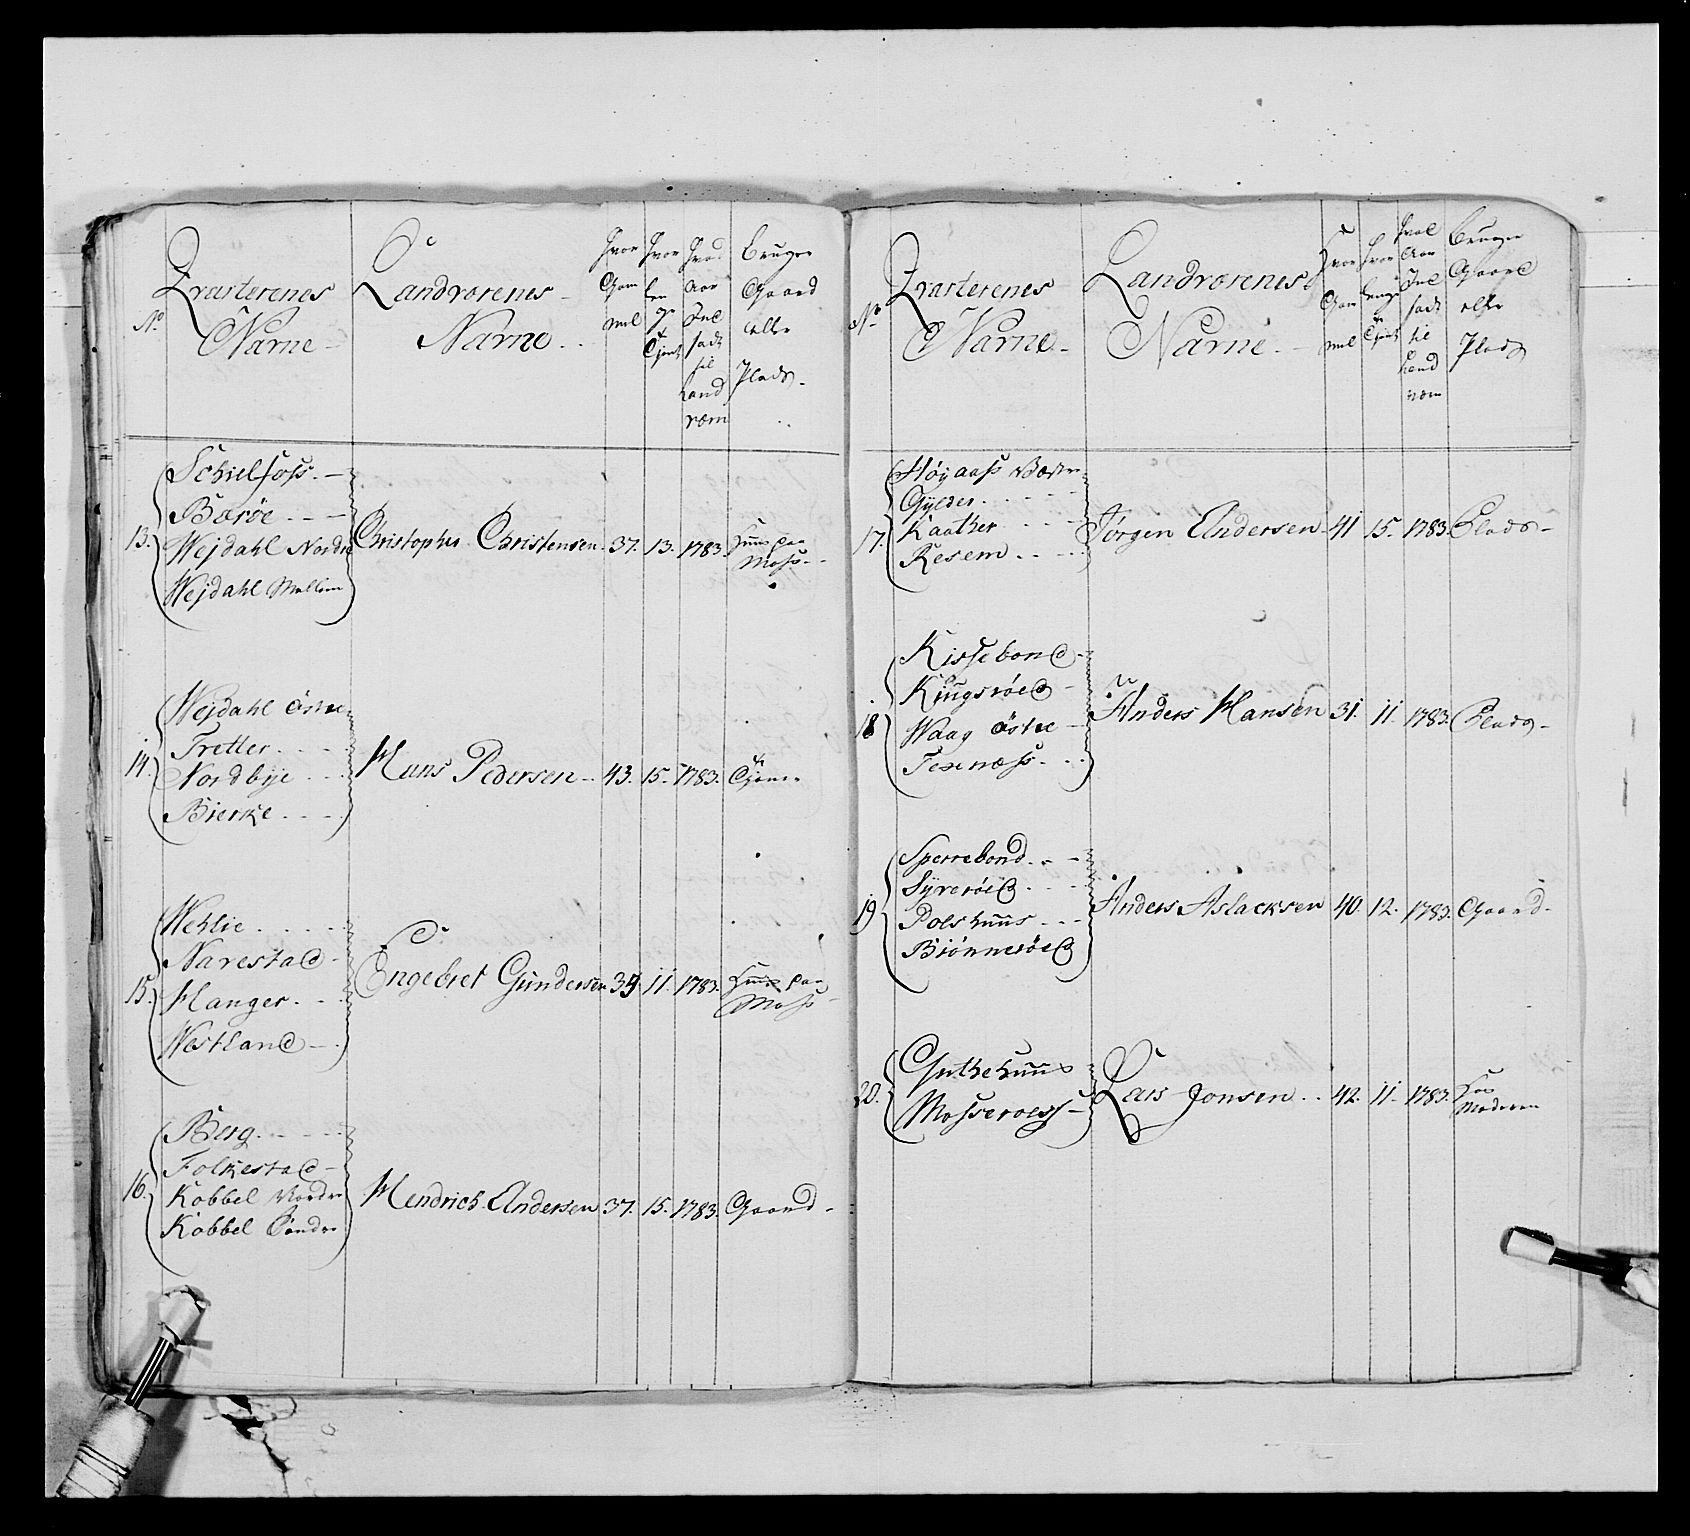 No
Qvarterenes
Navne
Landværenes
Navne
Hvor
Gam
mel
Hvor
len
ge
Tjent
Hvad
Aar
Ind
sadt
til
Land
værn
Bruger
Gaard
eller
Plads
13.
Schielfoss
Barøe
Wejdahl Nordre
Wejdahl Mellem
Christopher Christensen 37. 13. 1783. Huus paa
Moss
14.
Wejdahl Østre
Tretter
Nordbye
Bierke
Hans Pedersen 43. 15. 1783. Tjener
15.
Wehlie
Navestad
Hanger
Westland
Engebret Gundersen 35. 11. 1783. Huus paa
Moss
16.
Berg
Folkestad
Kobbel Nordre
Kobbel Søndre
Hendrich Andersen 37. 15. 1783. Gaard
No
Qvarterenes
Navne
Landværenes
Navne
Hvor
Gam
mel
Hvor
lenge
Tjent
Hvad
Aar
Ind
sadt
til
Land
værn
Bruger
Gaard
eller
Plads
17.
Høyaass Væstre
Gylder
Kaather
Resem
Jørgen Andersen 41 15. 1783. Plads
18
Kissebond
Kjngsrøed
Waag Østre
Texnæss
Anders Hansen 31. 11. 1783. Plads
19
Sperrebond
Syverøed
Polshuus
Biønnerøed
Anders Aslacksen 40. 12. 1783. Gaard
20.
Guthehuus
Mosseroess
Lars Jonsen 42. 11. 1783. Hos
Moderen